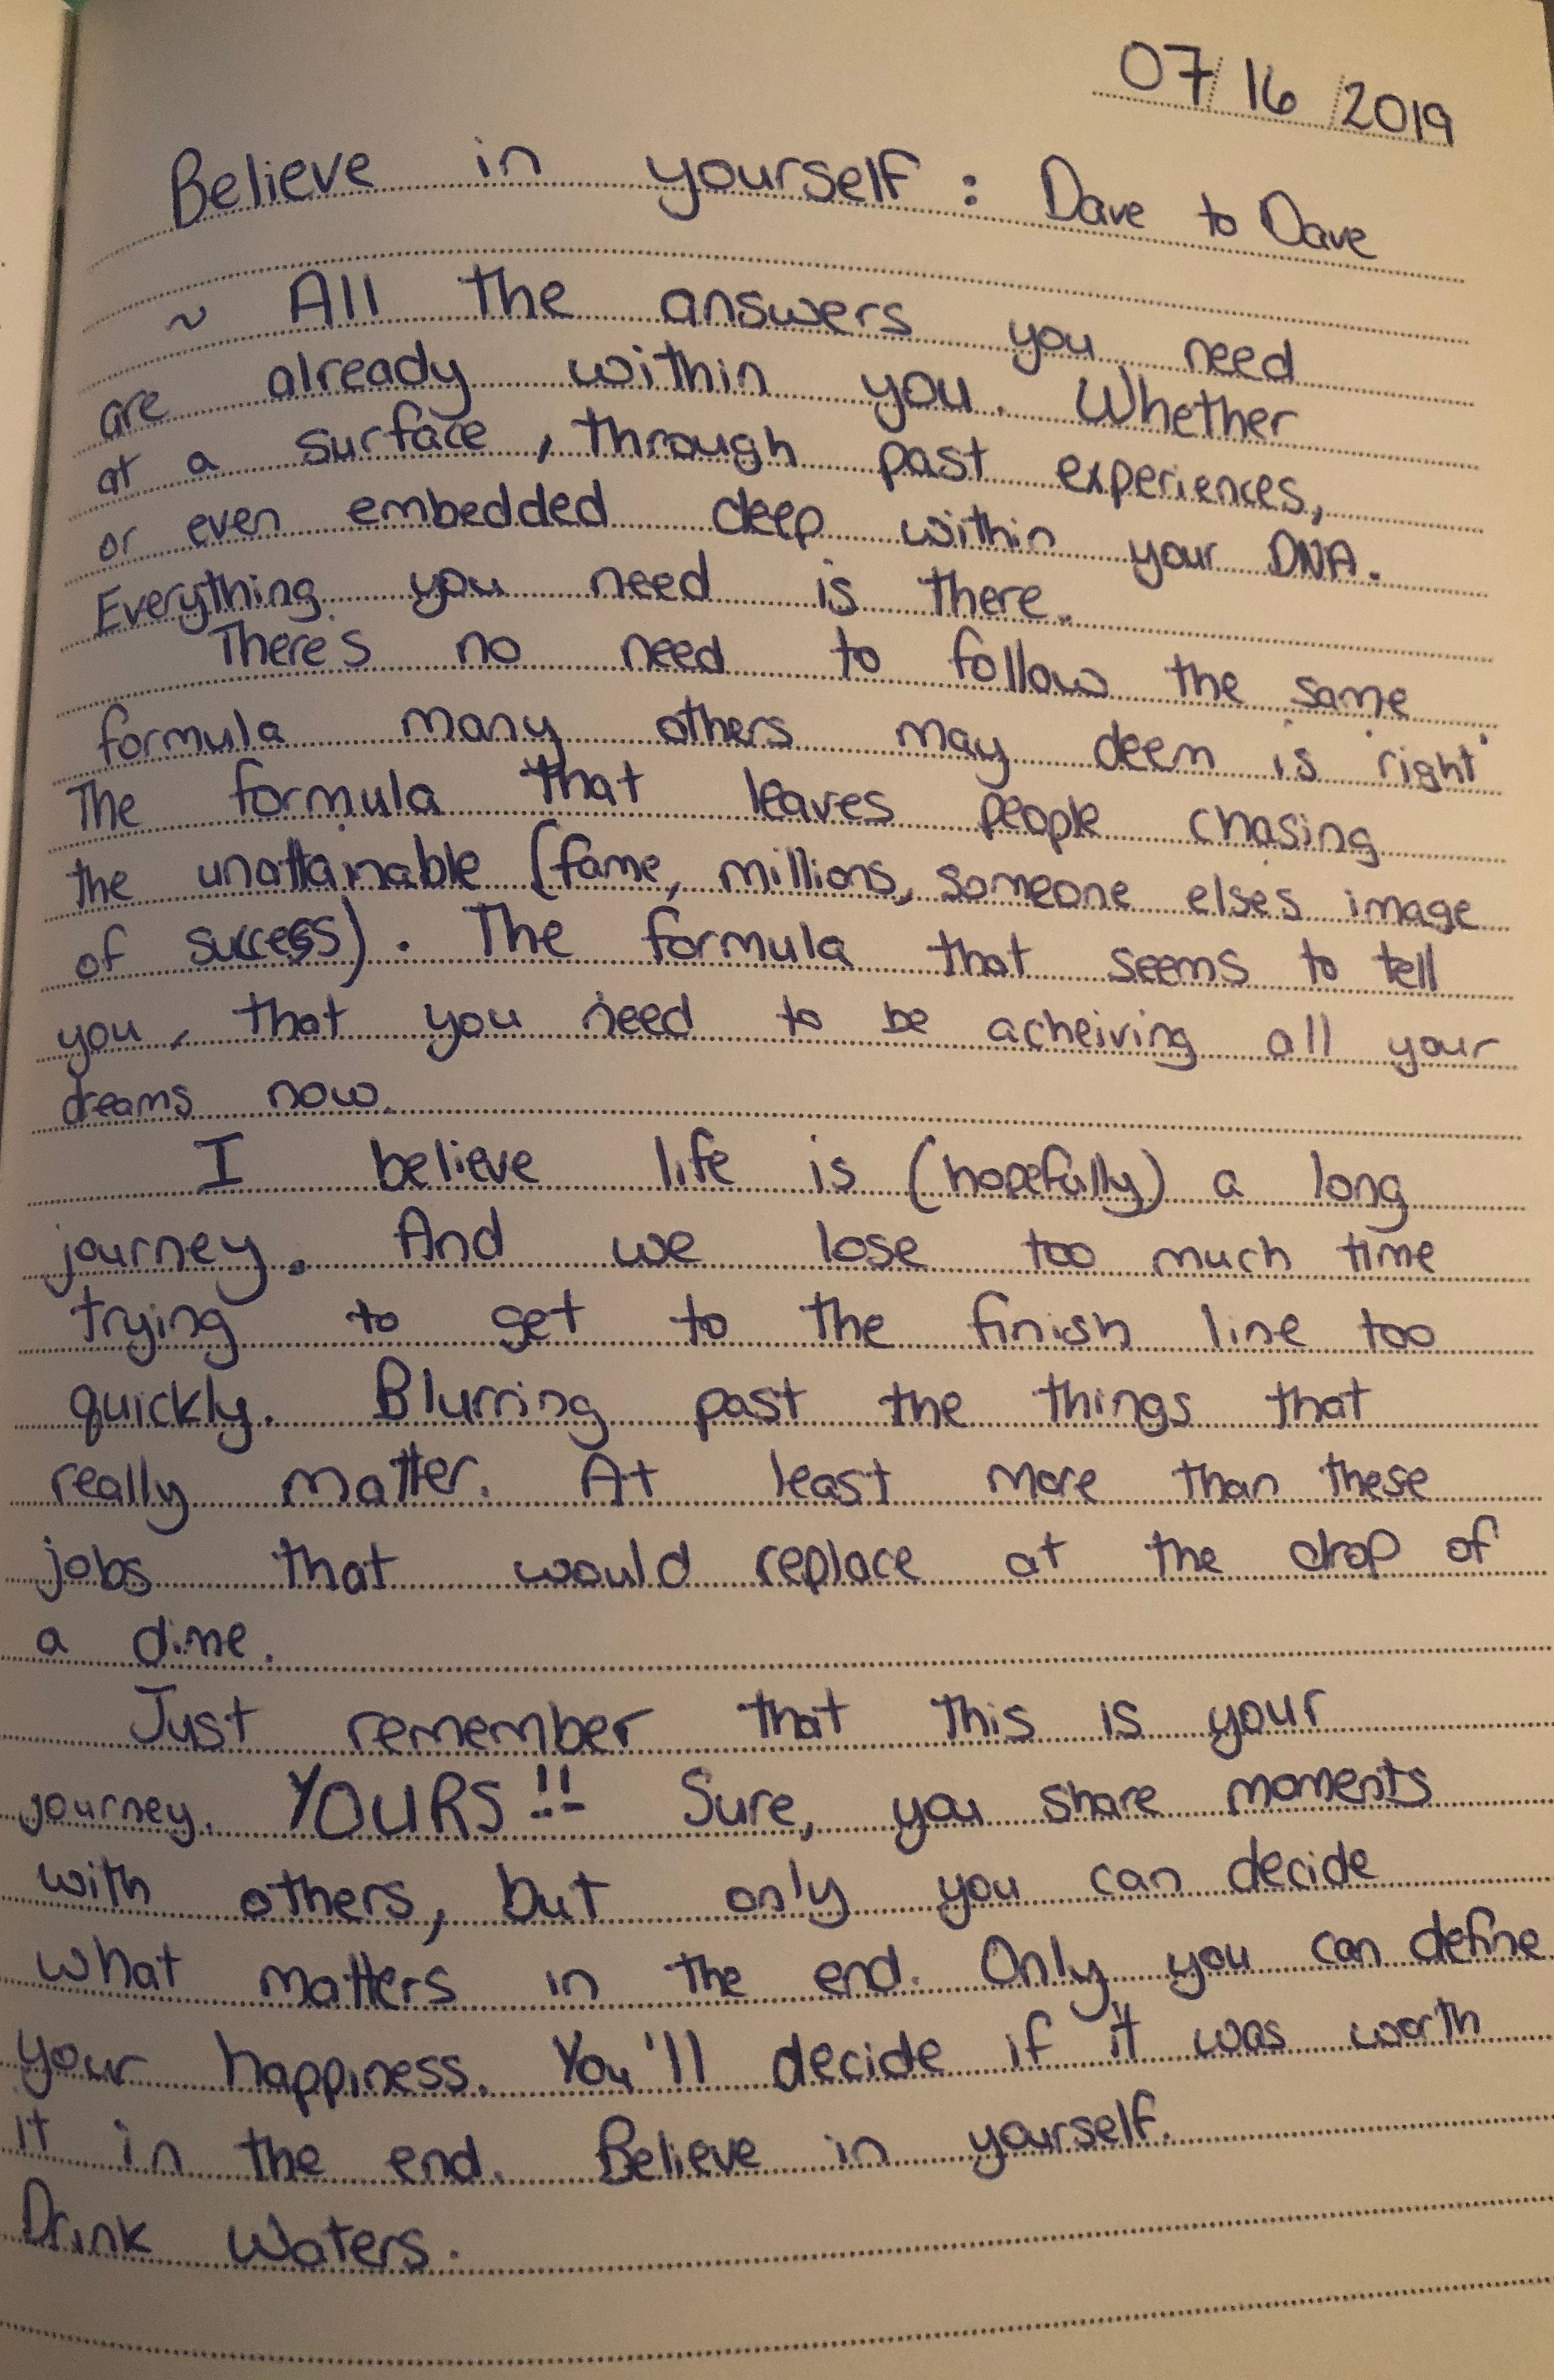 07/16/2019
Believe in yourself : Dave to Dave
~ All the answers you need
are already within you. Whether
at a surface, through past experiences,
or even embedded deep within your DNA.
Everything you need is there.
There's no need to follow the same
formula many others may deem is 'right'
The formula that leaves people chasing
the unattainable (fame, millions, someone elses image
of success). The formula that seems to tell
you, that you need to be acheiving all your
dreams now.
I believe life is (hopefully) a long
journey. And we lose too much time
trying to get to the finish line too
quickly. Blurring past the things that
really matter. At least more than these
jobs that would replace at the drop of
a dime.
Just remember that this is your
journey. YOURS!! Sure, you share moments
with others, but only you can decide
what matters in the end. Only you can define
your happiness. You'll decide if it was worth
it in the end. Believe in yourself.
Drink Waters.